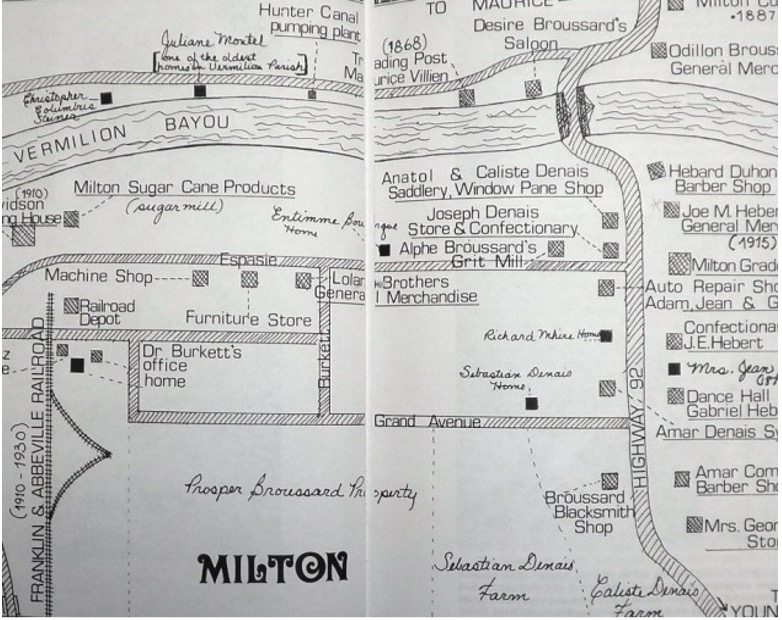 Hunter Canal
pumping plant
Juliane Montel
[one of the oldest
homes in Vermilion Parish]
Christopher
Columbus
VERMILION BAYOU
(1910)
Milton Sugar Cane Products
(sugar mill)
Entimme
Home
Espasie
Machine Shop
Furniture Store
Railroad
Depot
Dr Burkett's
office
home
Burkett
(1910-1930)
FRANKLIN & ABBEVILLE RAILROAD
Prosper Broussard Property
MILTON
TO MAURICE
Desire Broussard's
Saloon
(1868)
ading Post
urice Villien
Milton
1887
Odillon Brous
General Merc
Anatol & Caliste Denais
Saddlery, Window Pane Shop
Joseph Denais
Store & Confectionary
Alphe Broussard's
Grit Mill
Brothers
l Merchandise
Richard Mhire Home
Sebastian Denais
Home
Grand Avenue
HIGHWAY 92
Hebard Duhon
Barber Shop
Joe M. Hebe
General Mer
(1915)
Milton Grad
Auto Repair Sho
Adam, Jean & G
Confectiona
J.E. Hebert
Mrs. Jean
Dance Hall
Gabriel Heb
Amar Denais Sy
Amar Com
Barber Sho
Mrs. Geor
Sto
Broussard
Blacksmith
Shop
Sebastian Denais
Farm
Caliste Denais
Farm
YOUN